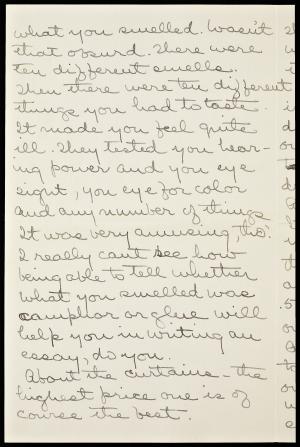 what you smelled. Wasn't
that absurd. There were
ten different smells.
Then there were ten different
things you had to taste.
It made you feel quite
ill. They tested you hear-
ing power and you eye
sight, you eye for color
and any number of things
It was very amusing, tho'.
I really can't see how
being able to tell whether
what you smelled was
camphor or glue will
help you in writing an
essay, do you.
About the curtains - the
highest price one is of
course the best.